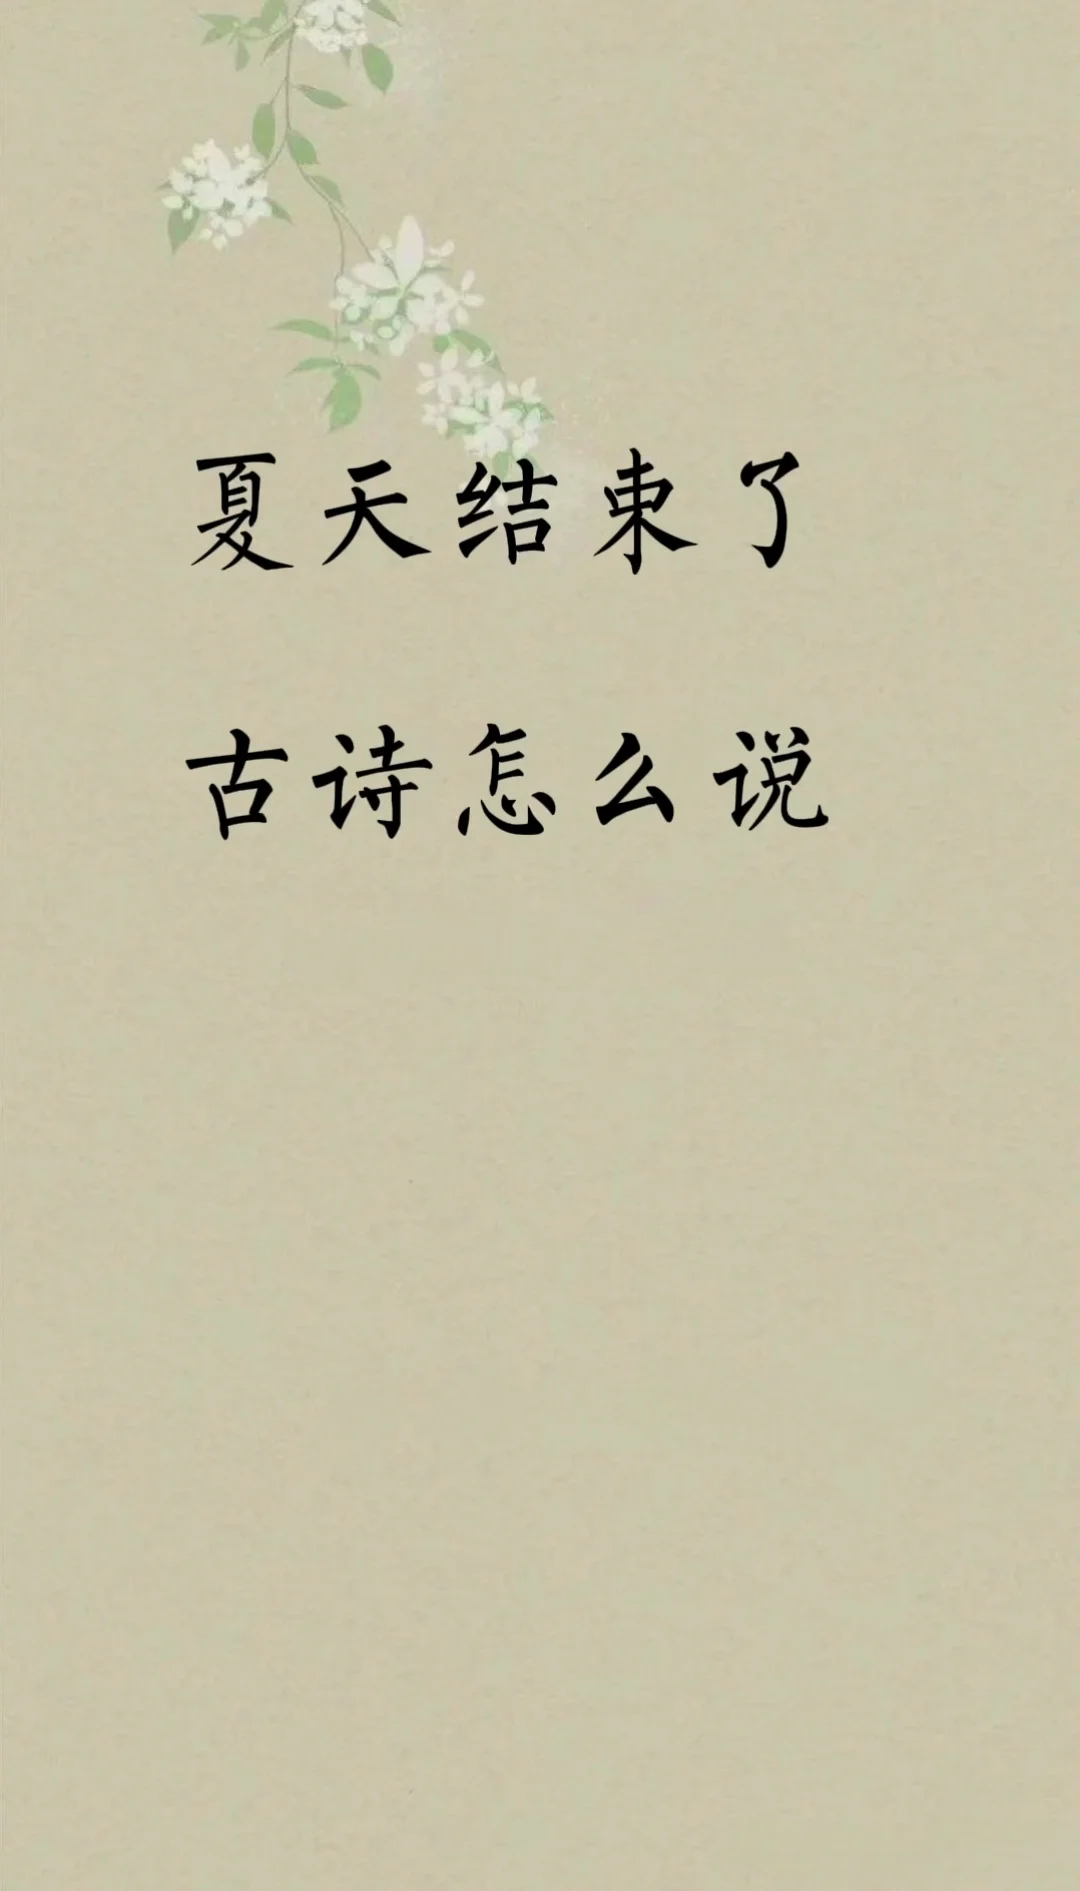 夏天结束了
古诗怎么说